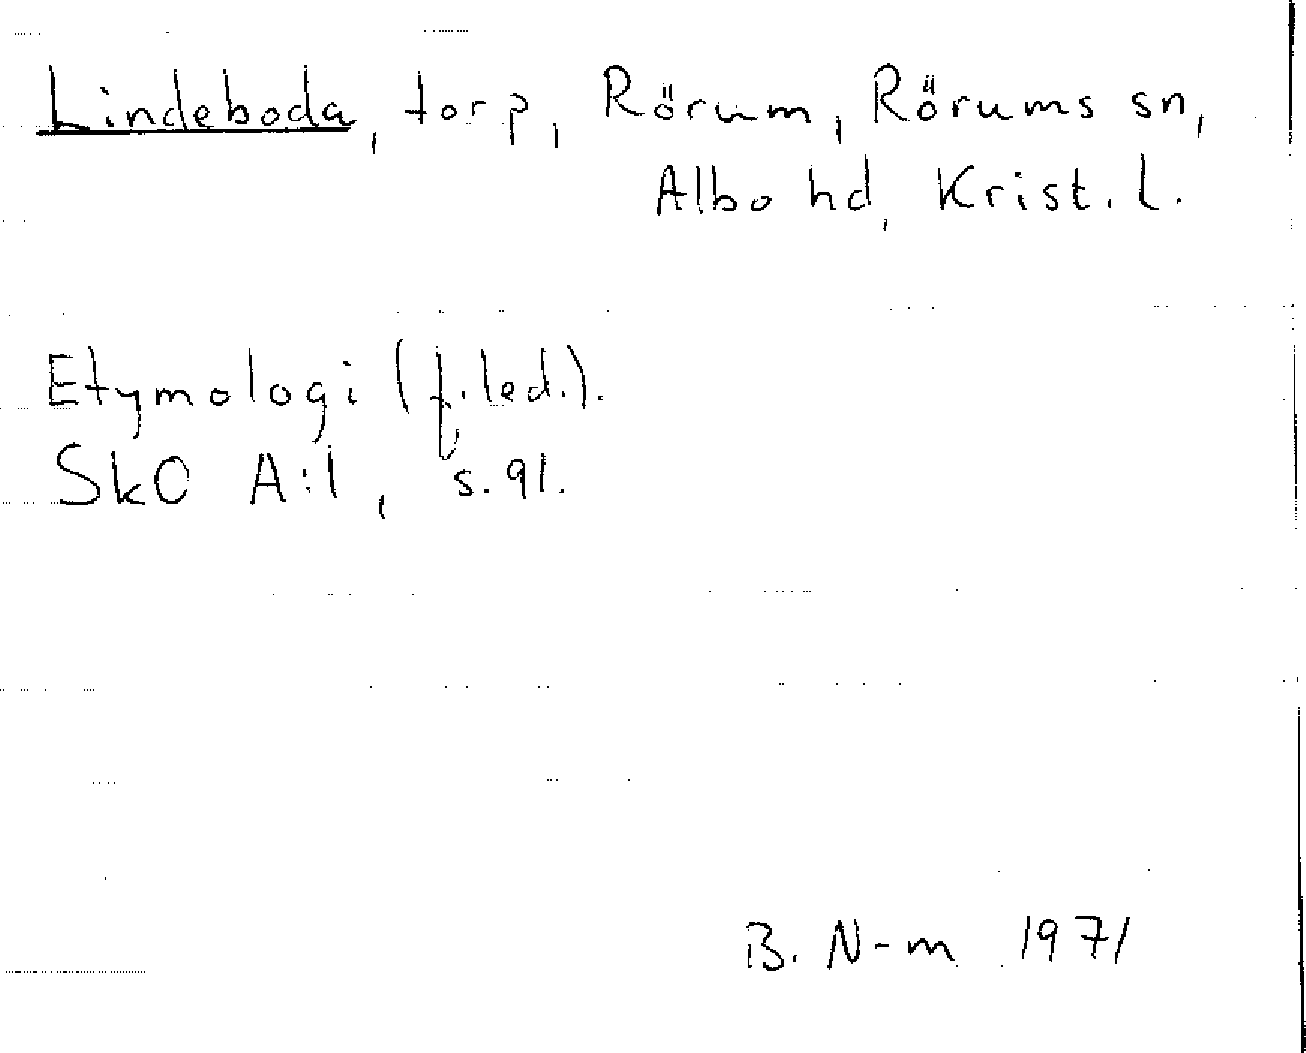 Lindeboda, torp, Rörum, Rörums sn,
Albo hd, Krist. l.
Etymologi (f. led.).
SkO A:1, s. 91.
B. N-m 1971